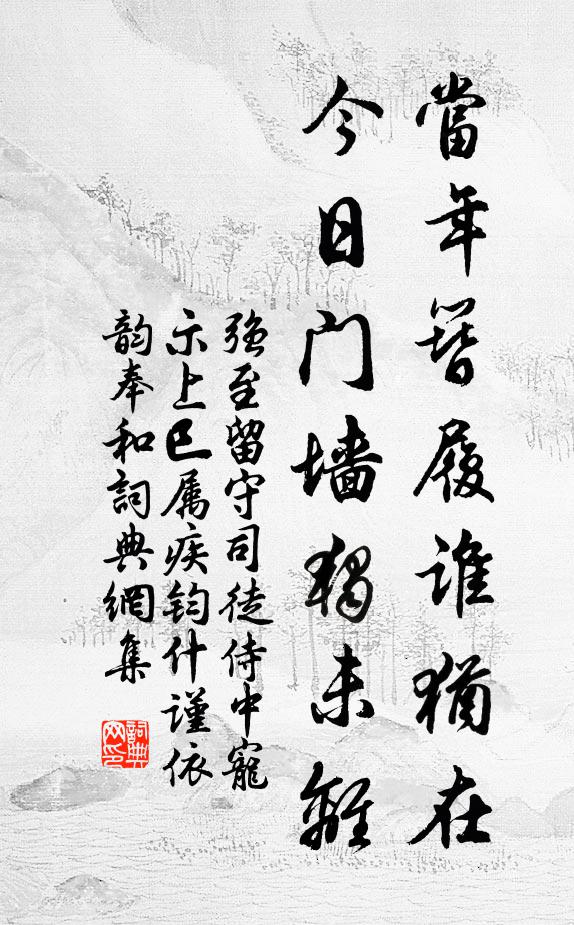 當年簪履谁猶在
今日门墙獨未離
强至留守司徒侍中寵
示上巳属疾钧什謹依
韵奉和詞典網集
詞典
网印